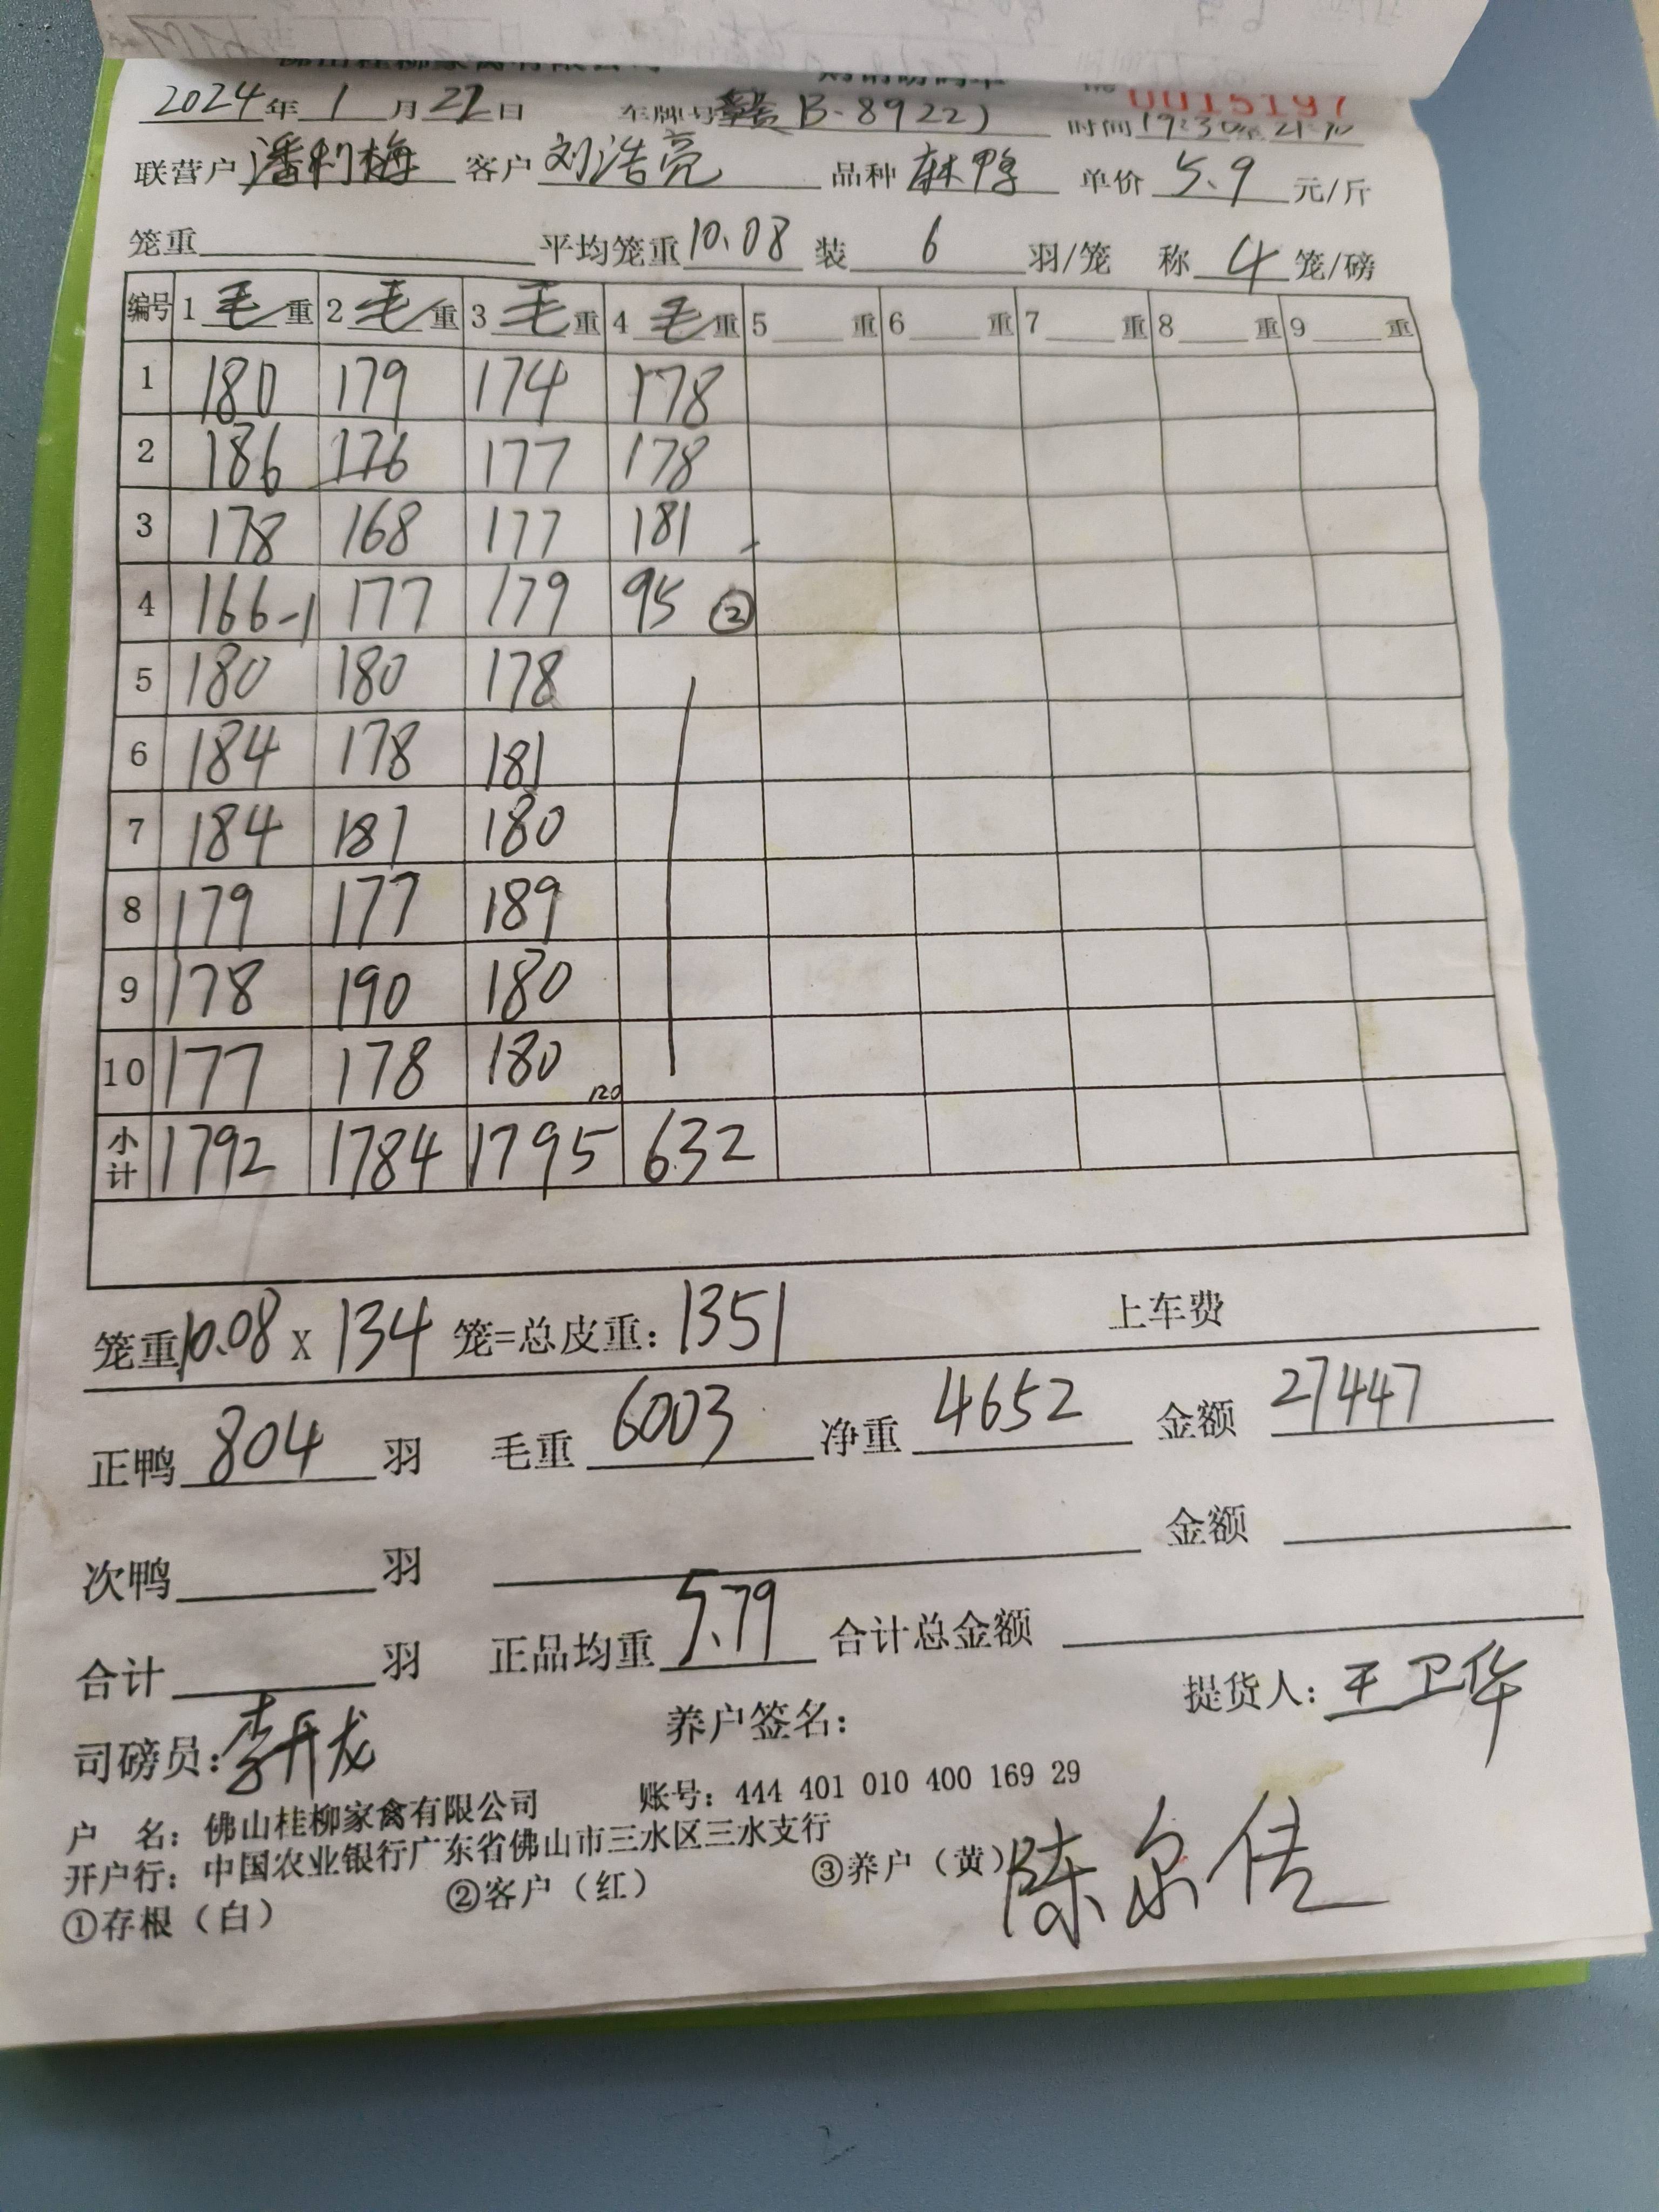 佛山桂柳家禽有限公司 购销磅码单 0015197
2024年1月22日 车牌号 B-8922 时间19:30至21:10
联营户 潘利梅 客户 刘浩亮 品种 麻鸭 单价 5.9 元/斤
笼重 平均笼重 10.08 装 6 羽/笼 称 4 笼/磅
编号 1 毛 重 2 毛 重 3 毛 重 4 毛 重 5 重 6 重 7 重 8 重 9 重
1 180 179 174 178
2 186 176 177 178
3 178 168 177 181
4 166-1 177 179 95 ②
5 180 180 178
6 184 178 181
7 184 181 180
8 179 177 189
9 178 190 180
10 177 178 180 120
小计 1792 1784 1795 632
笼重10.08 X 134 笼=总皮重: 1351 上车费
正鸭 804 羽 毛重 6003 净重 4652 金额 27447
次鸭 羽 金额
合计 羽 正品均重 5.79 合计总金额
司磅员: 李开龙 养户签名: 提货人: 王卫华
户 名: 佛山桂柳家禽有限公司 账号: 444 401 010 400 169 29
开户行: 中国农业银行广东省佛山市三水区三水支行
①存根（白） ②客户（红） ③养户（黄）
陈